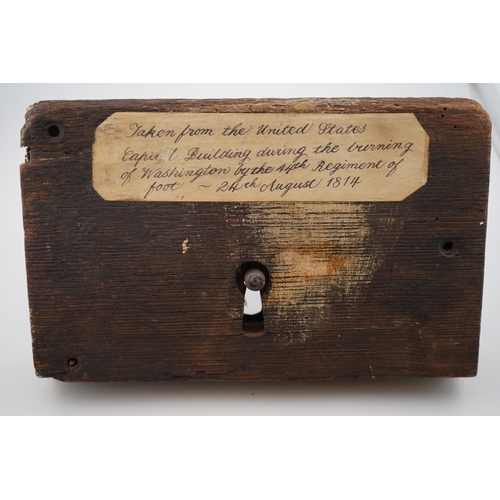 Taken from the United States
Capitol Building during the burning
of Washington by the 44th Regiment of
foot ~ 24th August 1814